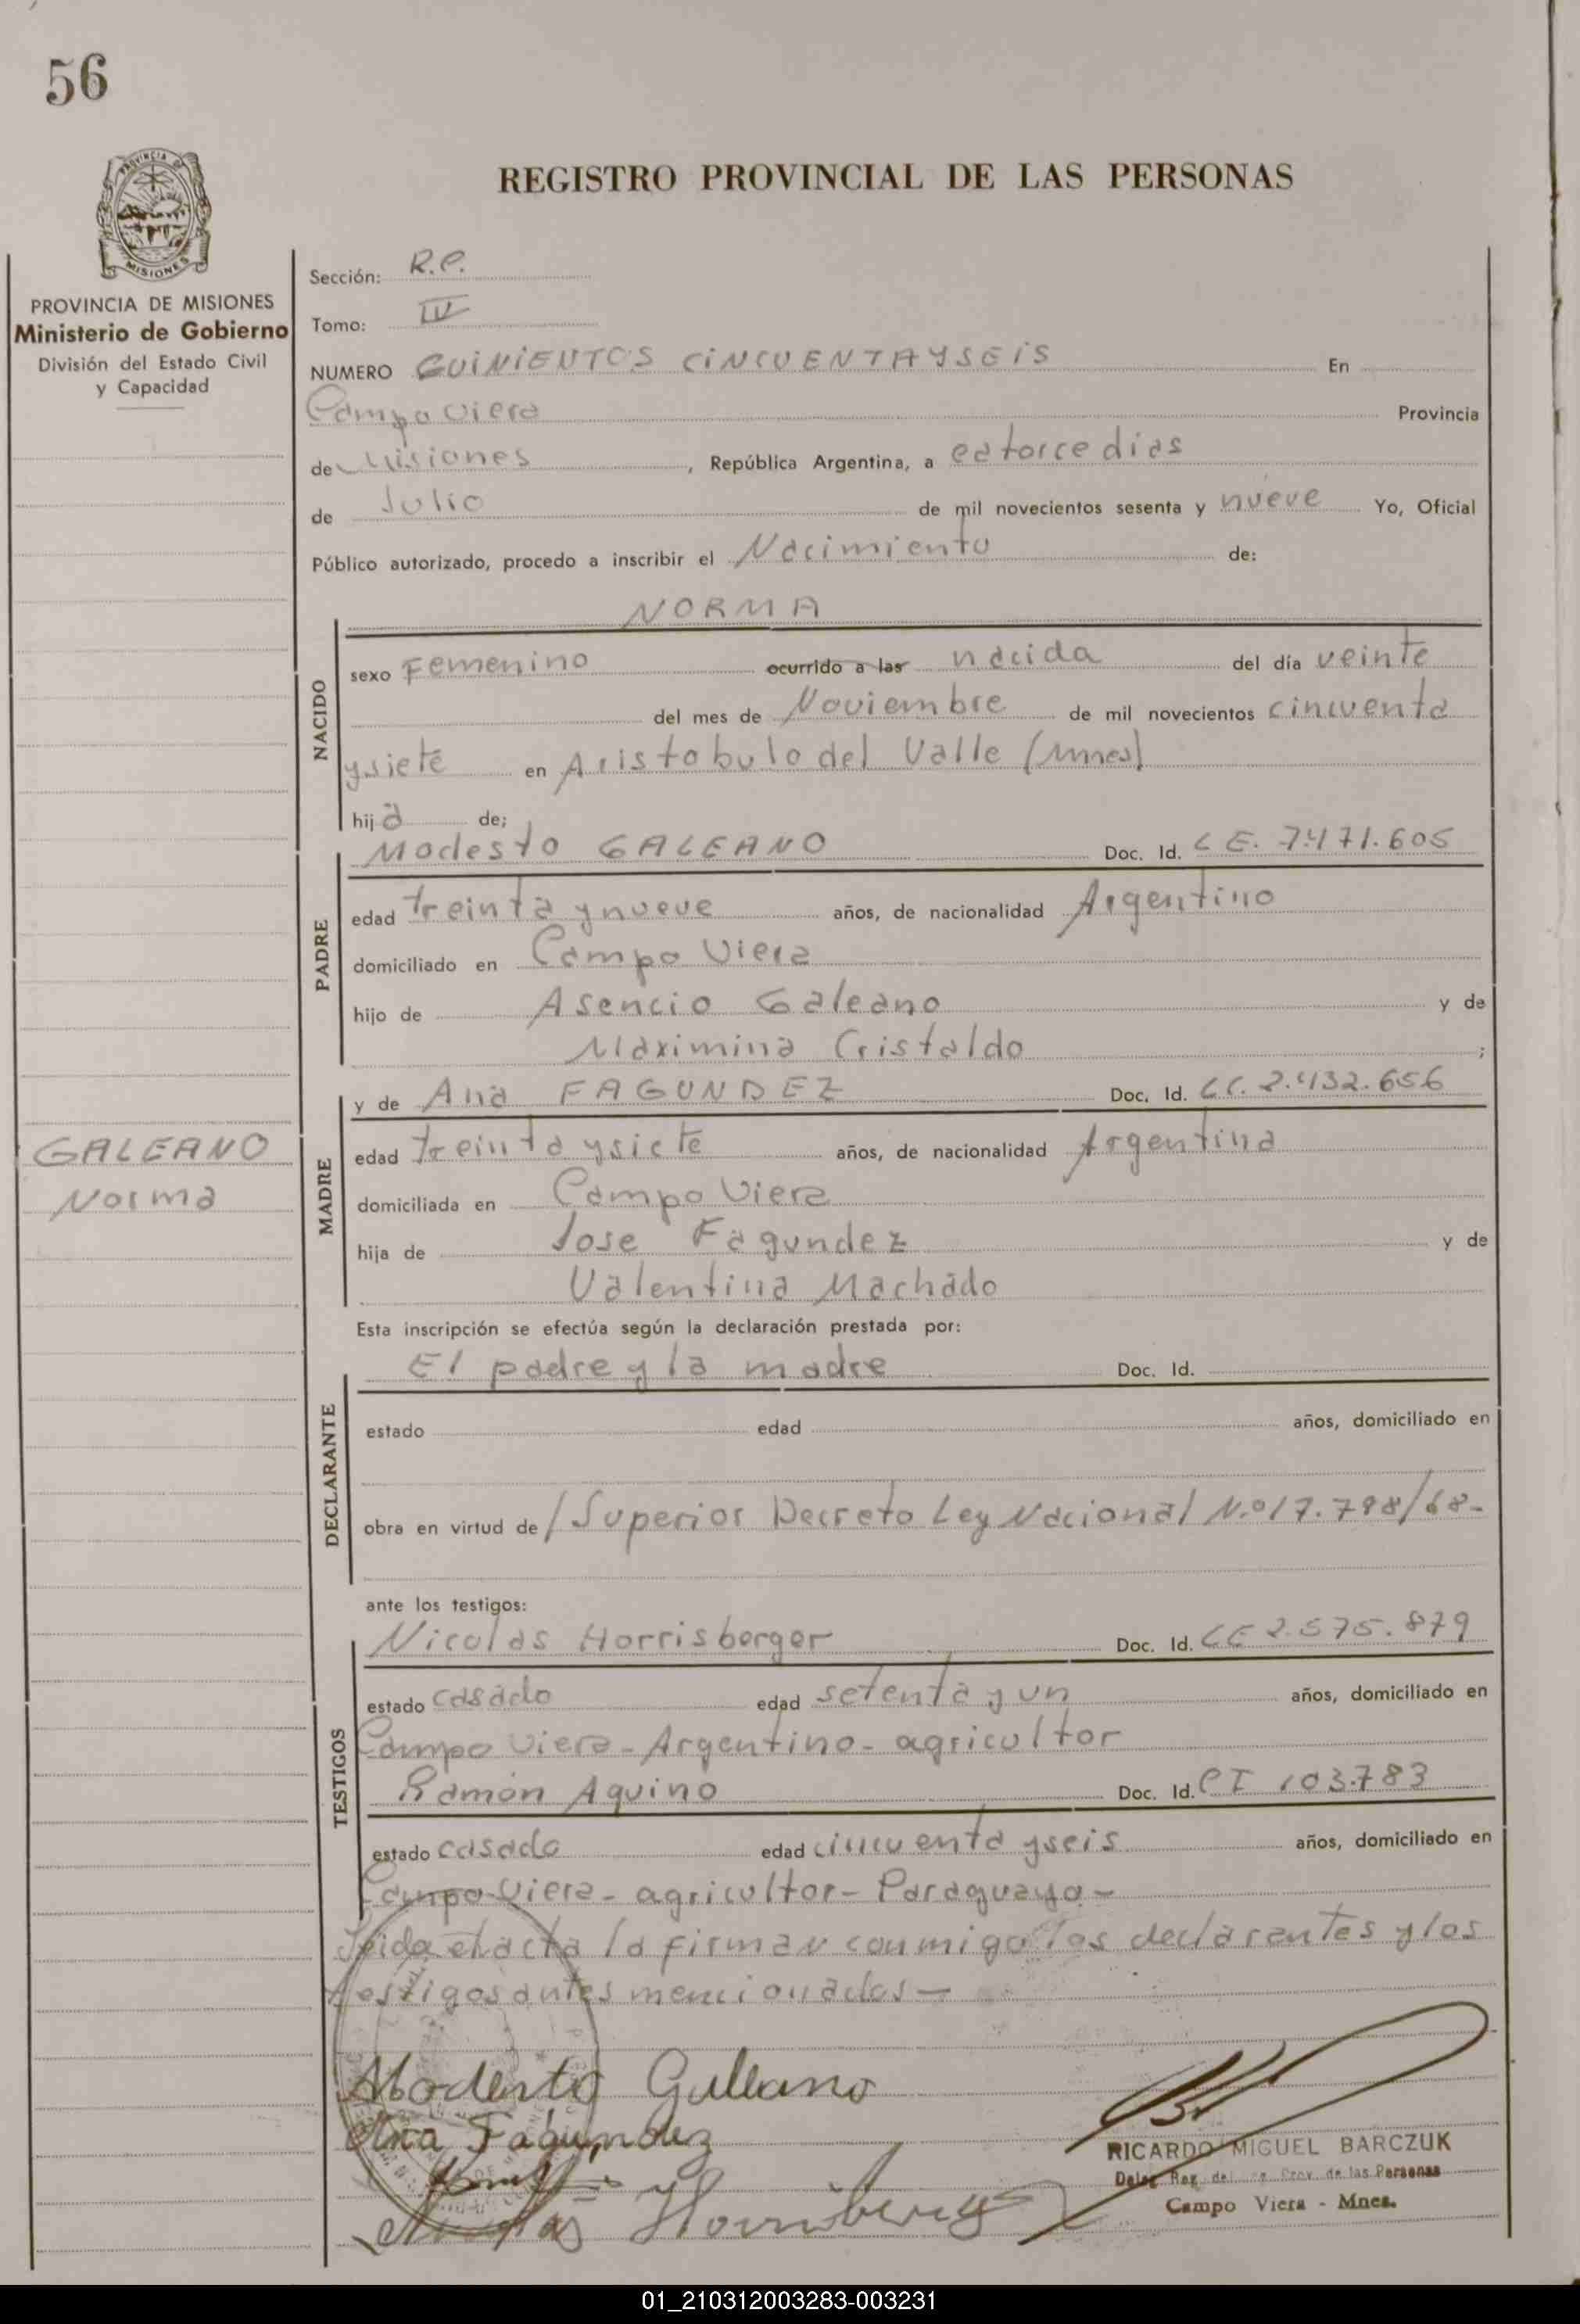 56
PROVINCIA DE
MISIONES
PROVINCIA DE MISIONES
Ministerio de Gobierno
División del Estado Civil
y Capacidad
REGISTRO PROVINCIAL DE LAS PERSONAS
Sección: R.P.
Tomo: III
NUMERO QUINIENTOS CINCUENTAYSEIS En
Campo Viera Provincia
de Misiones, República Argentina, a catorce dias
de Julio de mil novecientos sesenta y nueve Yo, Oficial
Público autorizado, procedo a inscribir el Nacimiento de:
NORMA
NACIDO
sexo Femenino ocurrido a las nacida del día veinte
del mes de Noviembre de mil novecientos cincuenta
ysiete en Aristobulo del Valle (Mnes)
hija de;
Modesto GALEANO Doc. Id. L E. 7.471.605
PADRE
edad treinta ynueve años, de nacionalidad Argentino
domiciliado en Campo Viera
hijo de Asencio Galeano y de
Maximina Cristaldo ;
y de Ana FAGUNDEZ Doc. Id. LC. 2.432.656
GALEANO
Norma
MADRE
edad treinta ysiete años, de nacionalidad Argentina
domiciliada en Campo Viera
hija de Jose Fagundez y de
Valentina Machado
Esta inscripción se efectúa según la declaración prestada por:
El padre y la madre Doc. Id.
DECLARANTE
estado edad años, domiciliado en
obra en virtud de / Superior Decreto Ley Nacional N.º 17.798/68-
ante los testigos:
Nicolas Horrisberger Doc. Id. LE 2.575.879
TESTIGOS
estado casado edad setenta y un años, domiciliado en
Campo Viera - Argentino - agricultor
Ramón Aquino Doc. Id. CI 103.783
estado casado edad cincuenta yseis años, domiciliado en
Campo Viera - agricultor - Paraguayo -
Leida el acta la firman conmigo los declarantes y los
testigos antes mencionados -
Modesto Galeano
Ana Fagundez
RICARDO MIGUEL BARCZUK
Prov. de las Personas
Campo Viera - Mnes.
01_210312003283-003231